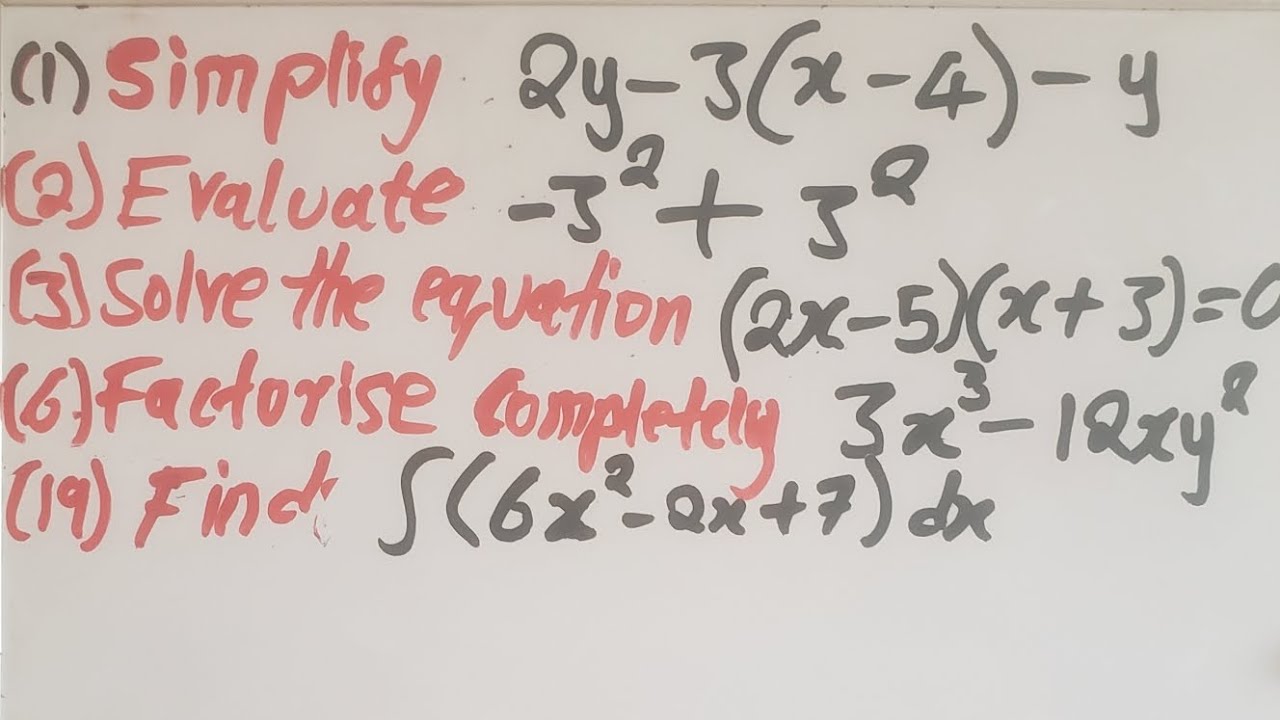 (1) Simplify 2y - 3(x - 4) - y
(2) Evaluate -3² + 3²
(3) Solve the equation (2x - 5)(x + 3) = 0
(6) Factorise completely 3x³ - 12xy²
(19) Find ∫(6x² - 2x + 7) dx